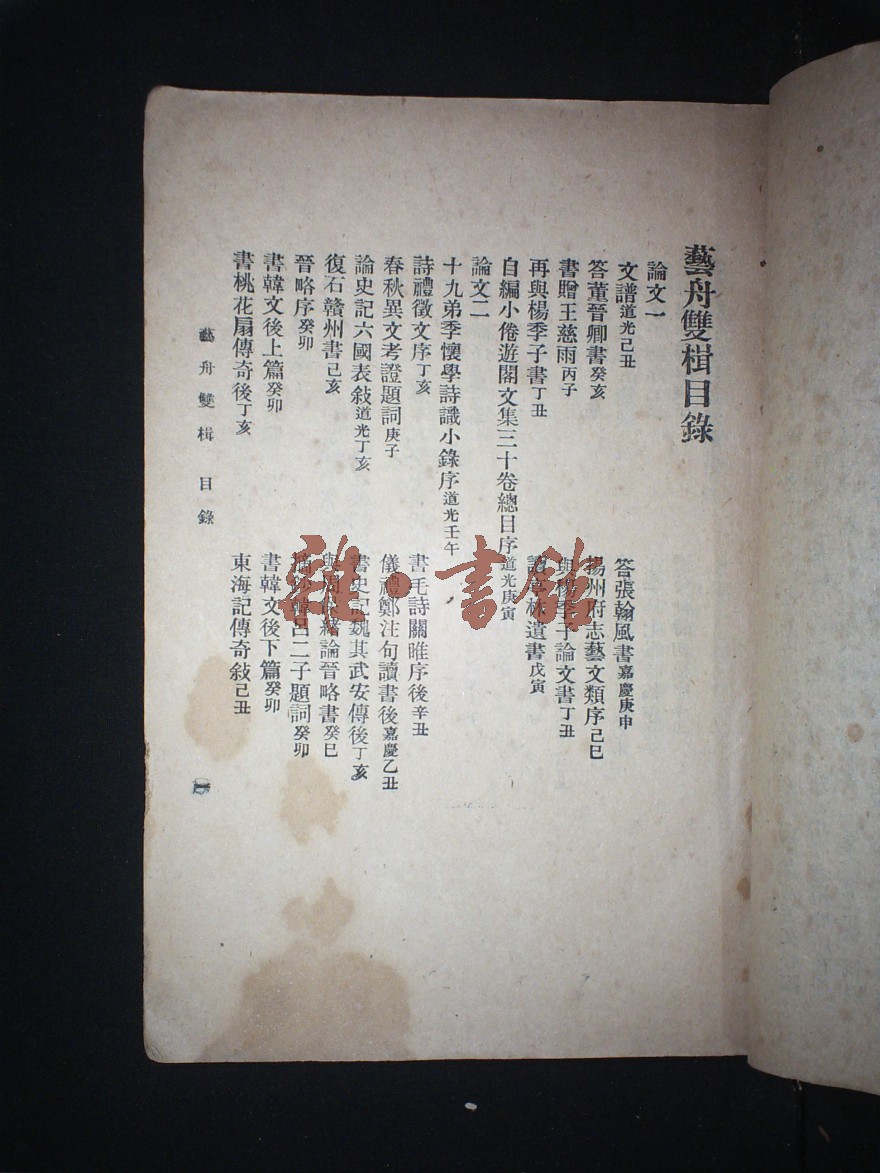 藝舟雙楫目錄
論文一
文譜道光己丑
答張翰風書嘉慶庚申
答董晉卿書癸亥
揚州府志藝文類序己巳
書贈王慈雨丙子
與楊季子論文書丁丑
再與楊季子書丁丑
讀亭林遺書戊寅
自編小倦遊閣文集三十卷總目序道光庚寅
論文二
十九弟季懷學詩識小錄序道光壬午
詩禮徵文序丁亥
書毛詩關雎序後辛丑
春秋異文考證題詞庚子
儀禮鄭注句讀書後嘉慶乙丑
論史記六國表敍道光丁亥
書史記魏其武安傳後丁亥
復石贛州書己亥
與周 緒論晉略書癸巳
晉略序癸卯
摘鈔韓呂二子題詞癸卯
書韓文後上篇癸卯
書韓文後下篇癸卯
書桃花扇傳奇後丁亥
東海記傳奇敍己丑
藝舟雙楫 目錄
一
雜·書館